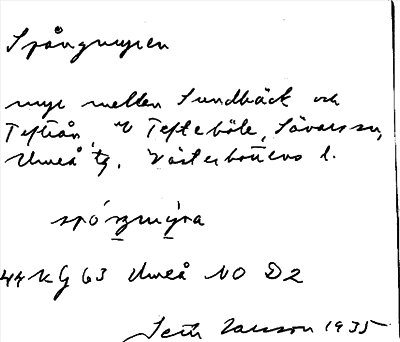 Spångmyren
myr mellan Sundbäck och
Tefteån, V Tefteböle, Sävars sn,
Umeå tg. Västerbottens l.
spó ŋmy̱ra
44 KG 63 Umeå NO D2
Larsson 1935